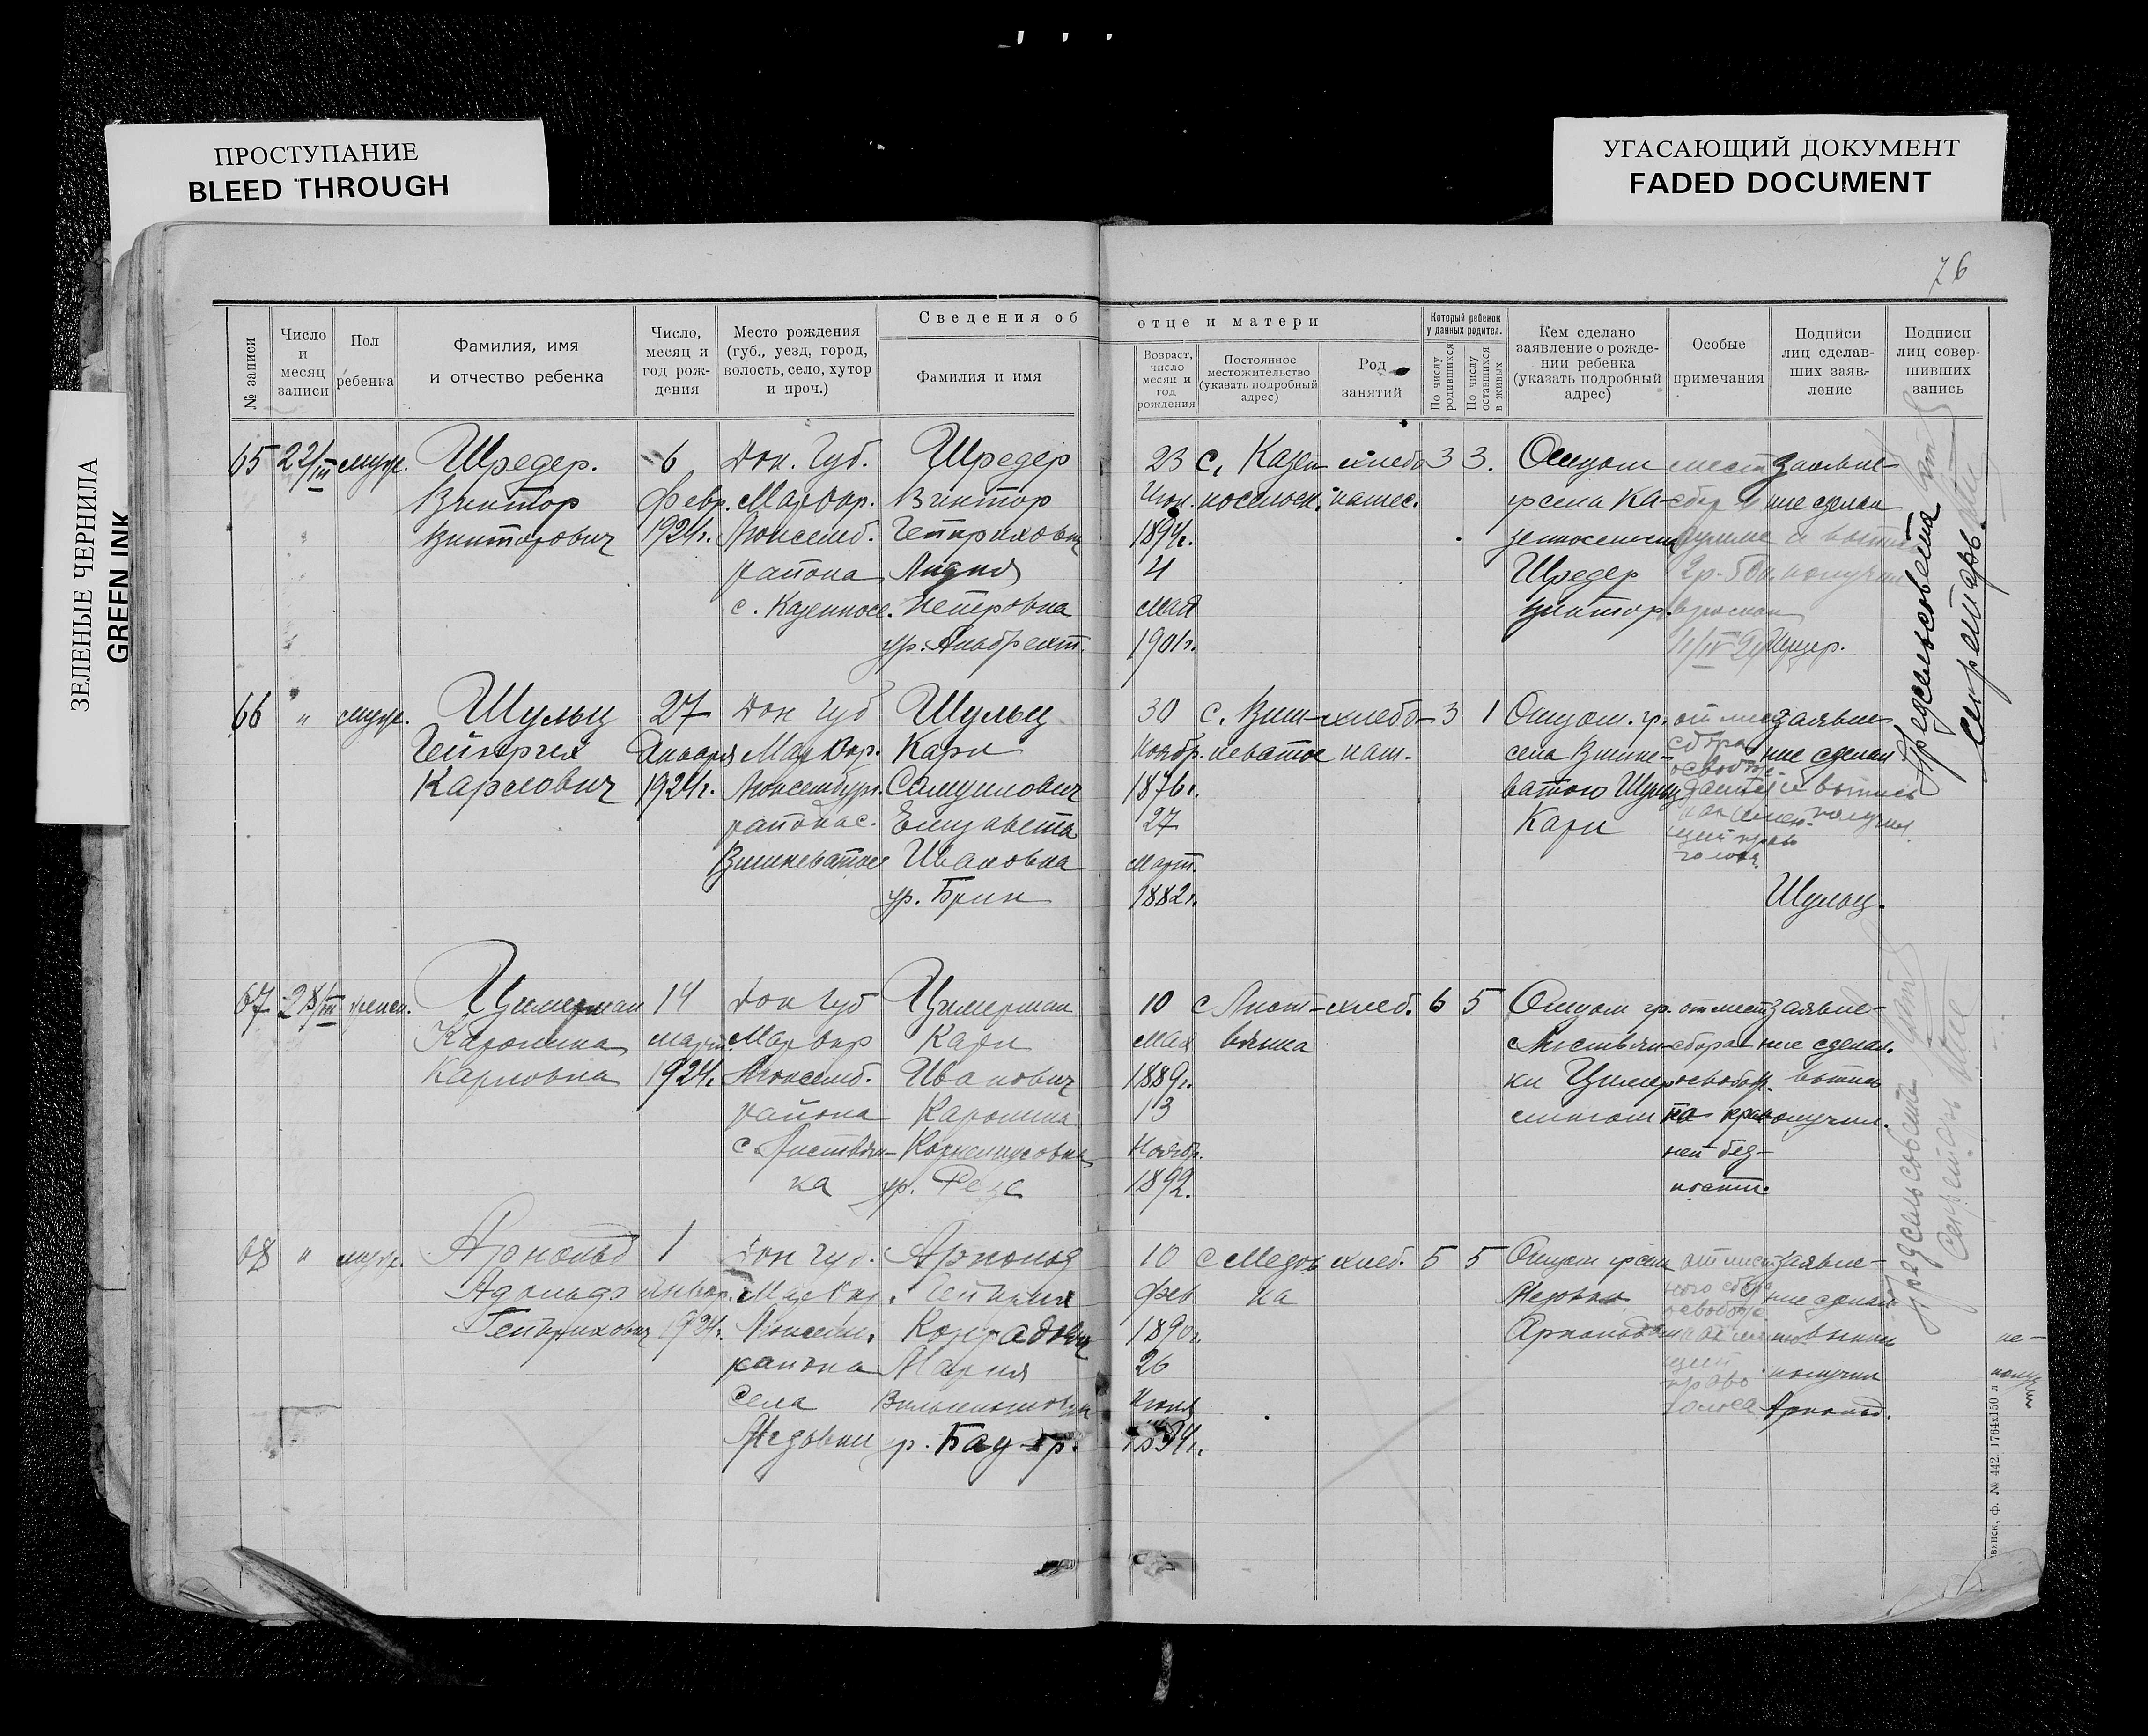 ПРОСТУПАНИЕ
BLEED THROUGH
УГАСАЮЩИЙ ДОКУМЕНТ
FADED DOCUMENT
ЗЕЛЕНЫЕ ЧЕРНИЛА
GREEN INK
76
Сведения об отце и матери
№ записи
Число
и
месяц
записи
Пол
ребенка
Фамилия, имя
и отчество ребенка
Число,
месяц и
год рож-
дения
Место рождения
(губ., уезд, город,
волость, село, хутор
и проч.)
Фамилия и имя
Возраст,
число
месяц и
год
рождения
Постоянное
местожительство
(указать подробный
адрес)
Род
занятий
Который ребенок
у данных родител.
По числу
родившихся
По числу
оставшихся
в живых
Кем сделано
заявление о рожде-
нии ребенка
(указать подробный
адрес)
Особые
примечания
Подписи
лиц сделав-
ших заяв-
ление
Подписи
лиц совер-
шивших
запись
65
22/III
муж.
Шредер.
Виктор
Викторович
6
Февр.
1924г.
Дон. Губ.
Мар Окр.
Люксемб.
района
с. Казеннос.
Шредер
Виктор
Гейнрихович
Лидия
Петровна
ур.
23
Июн.
1894г.
4
мая
1901г.
с. Казен-
носельск.
хлебо
пашес.
3
3.
Отцом
гр села Ка-
зенносельск
Шредер
Виктор.
2р. 50к.
11/IV 24
заявле-
ние сделал
и выпис
получил
Шредер.
Предсельсовета
Секретарь
66
"
муж.
Шульц
Гейнрих
Карлович
27
Января
1924г.
Дон Губ
Мар Окр.
Люксембург.
района с.
Вишневатое
Шульц
Карл
Самуилович
Елизавета
Ивановна
ур. Брик
30
Ноябр.
1876г.
27
Март.
1882г.
с. Виш-
неватое
хлебо-
паш.
3
1
Отцом. гр.
села Вишне-
ватого Шульц
Карл
от мест
сбора
освобож-
ден
право
голоса.
заявле-
ние сделал
и выпись
получил
Шульц.
67
28/III
женск.
Цимерман
Каролина
Карловна
14
март.
1924г.
Дон Губ
Мар Окр
Люксемб.
района
с Листвян-
ка
Цимерман
Карл
Иванович
Каролина
Корнелиусовна
ур.
10
Мая
1889г.
13
Ноябр.
1892.
с Лист-
вянка
хлеб.
6
5
Отцом гр.
Листвян-
ки Цимер-
маном
от мест
сбора
освобож.
по край
ней бед-
ности.
заявле-
ние сделал.
выпись
получил.
Предсельсовета
Секретарь
68
"
муж.
Арнольд
Адольф
Гейнрихович
1
Январ.
1924г.
Дон Губ.
Мар Окр.
Люксем.
района
села
Медовки
Арнольд
Гейнрих
Конрадович
Мария
Вильгельмовна
10
Фев
1890г.
26
Июня
1894г.
с Медов
ка
хлеб.
5
5
Отцом гр села
Медовки
Арнольдом
от мест
ного сбора
освобож
право
голоса
заявле-
ние сделал
выпись
получил
Арнольд.
ф. № 442. 1764х150 л